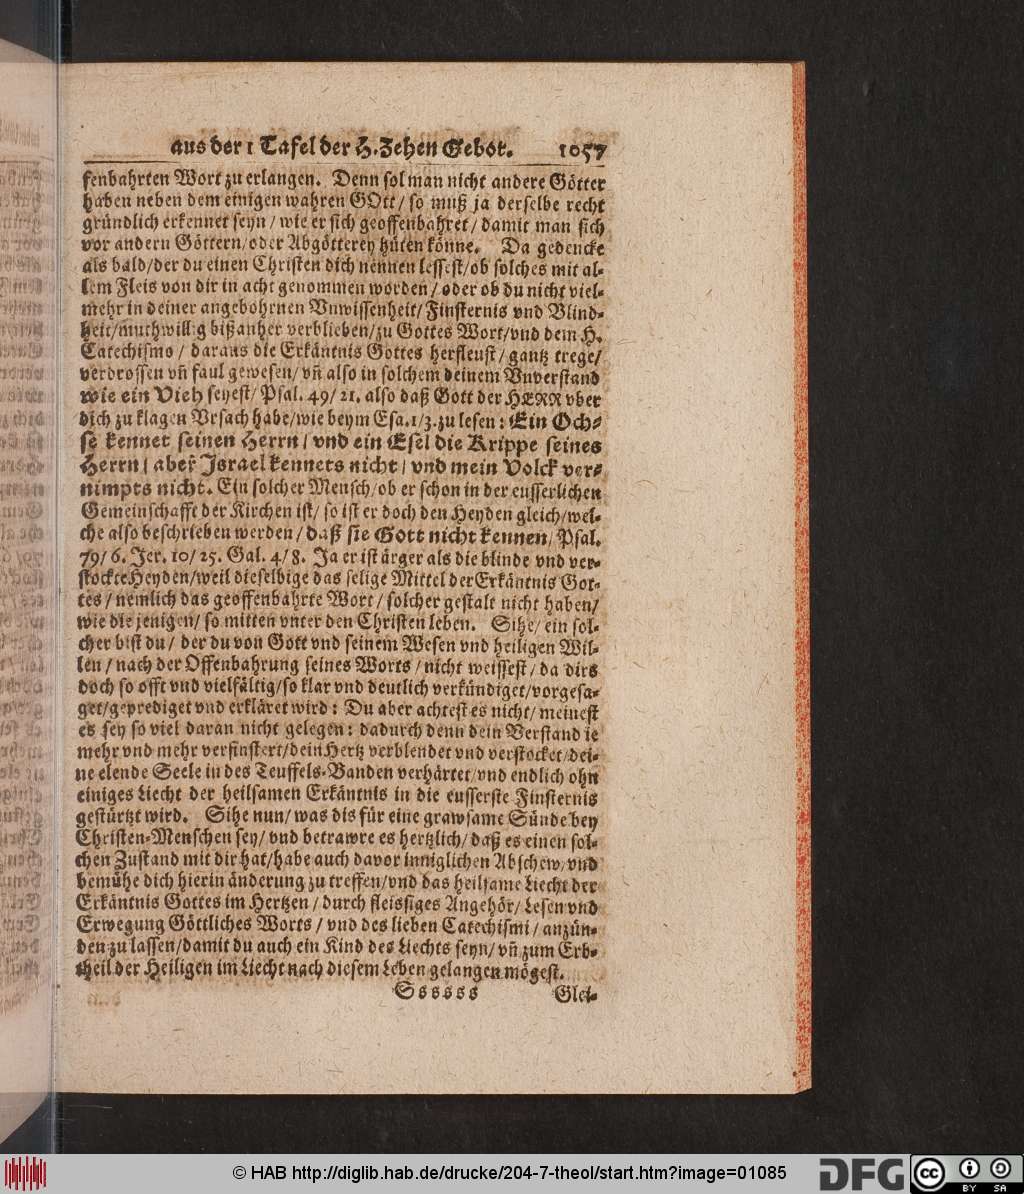 aus der 1 Tafel der H. Zehen Gebot. 1057
fenbahrten Wort zu erlangen. Denn sol man nicht andere Götter
haben neben dem einigen wahren GOtt / so muß ja derselbe recht
gründlich erkennet seyn / wie er sich geoffenbahret / damit man sich
vor andern Göttern / oder Abgötterey hüten könne. Da gedencke
als bald / der du einen Christen dich nennen lessest / ob solches mit al-
lem Fleis von dir in acht genommen worden / oder ob du nicht viel-
mehr in deiner angebohrnen Vnwissenheit / Finsternis vnd Blind-
heit / muthwillig bißanher verblieben / zu Gottes Wort / vnd dem H.
Catechismo / daraus die Erkäntnis Gottes herfleust / gantz trege /
verdrossen vñ faul gewesen / vñ also in solchem deinem Vnverstand
wie ein Vieh seyest / Psal. 49 / 21. also daß Gott der HERR vber
dich zu klagen Vrsach habe / wie beym Esa. 1 / 3. zu lesen : Ein Och-
se kennet seinen Herrn / vnd ein Esel die Krippe seines
Herrn / aber Israel kennets nicht / vnd mein Volck ver-
nimpts nicht. Ein solcher Mensch / ob er schon in der eusserlichen
Gemeinschafft der Kirchen ist / so ist er doch den Heyden gleich / wel-
che also beschrieben werden / daß sie Gott nicht kennen / Psal.
79 / 6. Jer. 10 / 25. Gal. 4 / 8. Ja er ist ärger als die blinde vnd ver-
stockte Heyden / weil dieselbige das selige Mittel der Erkäntnis Got-
tes / nemlich das geoffenbahrte Wort / solcher gestalt nicht haben /
wie die jenigen / so mitten vnter den Christen leben. Sihe / ein sol-
cher bist du / der du von Gott vnd seinem Wesen vnd heiligen Wil-
len / nach der Offenbahrung seines Worts / nicht weissest / da dirs
doch so offt vnd vielfältig / so klar vnd deutlich verkündiget / vorgesa-
get / geprediget vnd erkläret wird : Du aber achtest es nicht / meinest
es sey so viel daran nicht gelegen : dadurch denn dein Verstand ie
mehr vnd mehr verfinstert / dein Hertz verblendet vnd verstocket / dei-
ne elende Seele in des Teuffels-Banden verhärtet / vnd endlich ohn
einiges Liecht der heilsamen Erkäntnis in die eusserste Finsternis
gestürtzt wird. Sihe nun / was dis für eine grawsame Sünde bey
Christen-Menschen sey / vnd betrawre es hertzlich / daß es einen sol-
chen Zustand mit dir hat / habe auch davor inniglichen Abschew / vnd
bemühe dich hierin änderung zu treffen / vnd das heilsame Liecht der
Erkäntnis Gottes im Hertzen / durch fleissiges Angehör / Lesen vnd
Erwegung Göttliches Worts / vnd des lieben Catechismi / anzün-
den zu lassen / damit du auch ein Kind des Liechts seyn / vñ zum Erb-
theil der Heiligen im Liecht nach diesem Leben gelangen mögest.
Ssssss Glei-
© HAB http://diglib.hab.de/drucke/204-7-theol/start.htm?image=01085
DFG
cc BY SA